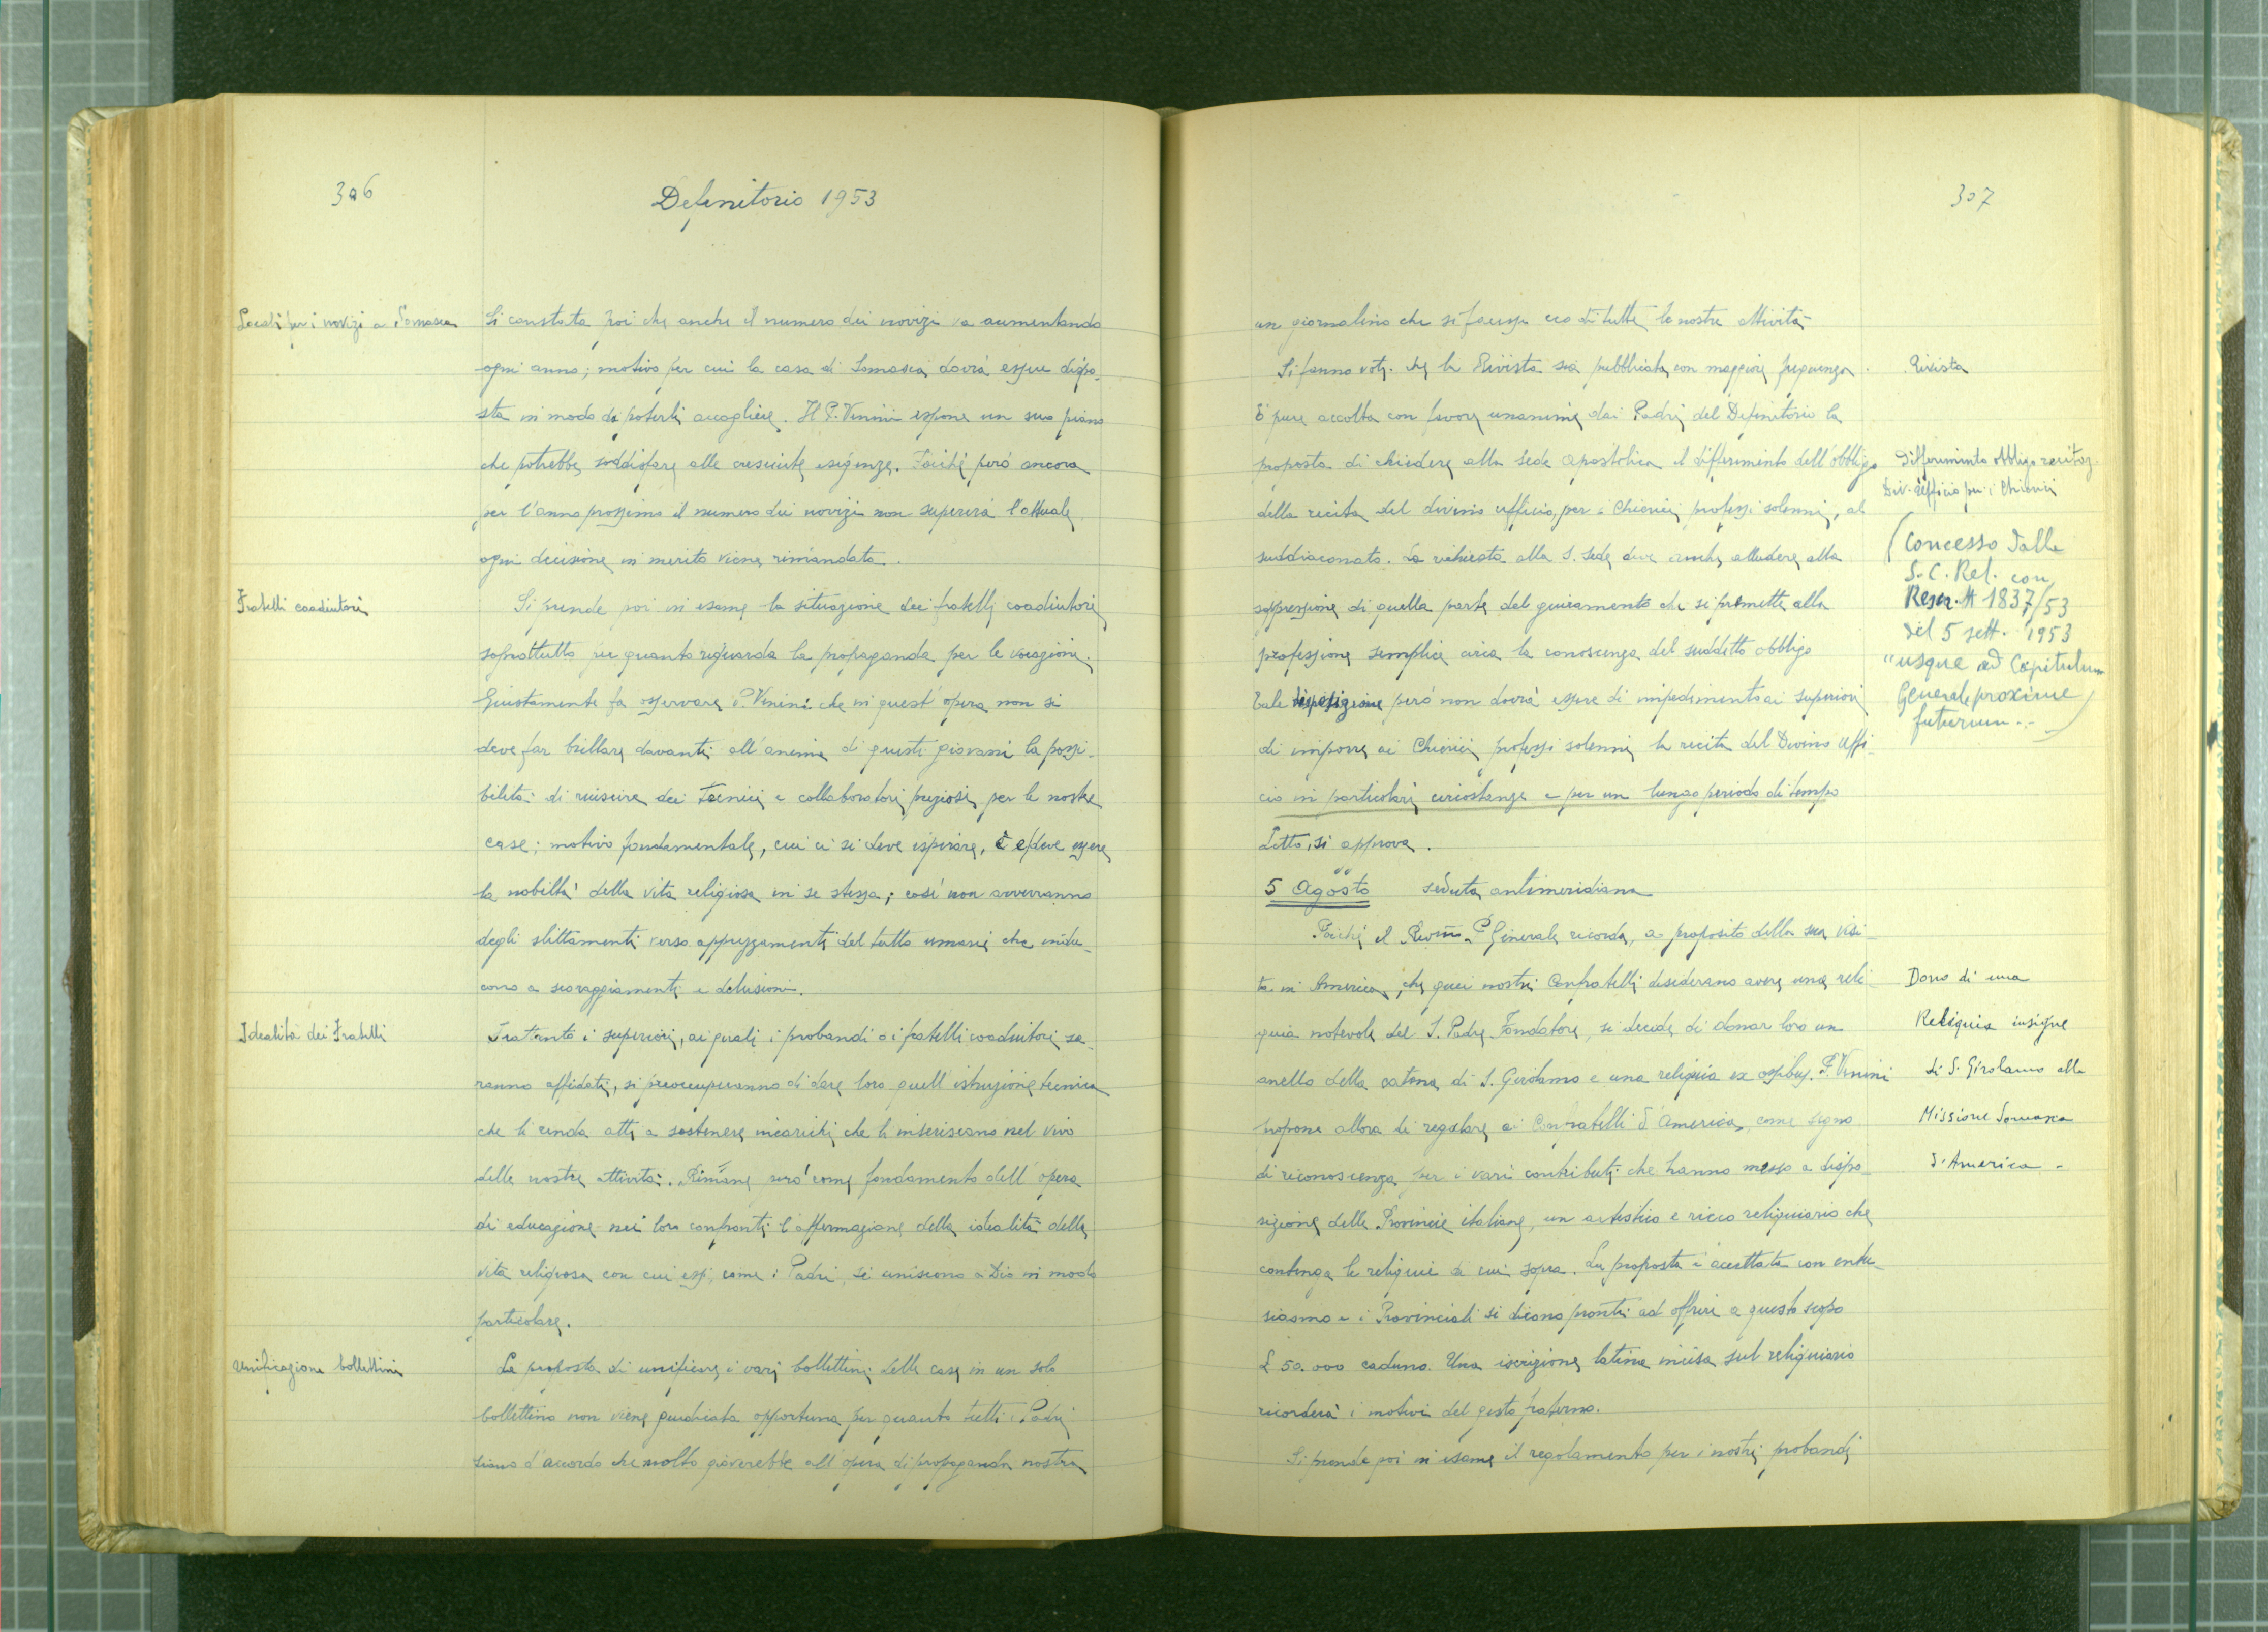 306
Definitorio 1953
Locali per i novizi a Somasca
Si constata poi che anche il numero dei novizi va aumentando
ogni anno; motivo per cui la casa di Somasca dovrà essere dispo-
sta in modo da poterli accogliere. Il P. Venini espone un suo piano
che potrebbe soddisfare alle cresciute esigenze. Poiché però ancora
per l'anno prossimo il numero dei novizi non supererà l'attuale,
ogni decisione in merito viene rimandata.
Fratelli coadiutori
Si prende poi in esame la situazione dei fratelli coadiutori
soprattutto per quanto riguarda la propaganda per le vocazioni.
Giustamente fa osservare P. Venini che in quest'opera non si
deve far brillare davanti all'anima di questi giovani la possi-
bilità di riuscire dei tecnici e collaboratori preziosi per le nostre
case; motivo fondamentale, cui ci si deve ispirare, è e deve essere
la nobiltà della vita religiosa in se stessa; così non avverranno
degli slittamenti verso apprezzamenti del tutto umani che indu-
cono a scoraggiamenti e delusioni.
Idealità dei Fratelli
Frattanto i superiori, ai quali i probandi o i fratelli coadiutori sa-
ranno affidati, si preoccuperanno di dare loro quell'istruzione tecnica
che li renda atti a sostenere incarichi che li inseriscano nel vivo
delle nostre attività. Rimane però come fondamento dell'opera
di educazione nei loro confronti l'affermazione della idealità della
vita religiosa con cui essi, come i Padri, si uniscono a Dio in modo
particolare.
Unificazione bollettini
La proposta di unificare i vari bollettini delle case in un solo
bollettino non viene giudicata opportuna per quanto tutti i Padri
siano d'accordo che molto gioverebbe all'opera di propaganda nostra
307
un giornalino che si facesse eco di tutte le nostre attività
Si fanno voti che la Rivista sia pubblicata con maggiore frequenza.
Rivista
È pure accolta con favore unanime dai Padri del Definitorio la
proposta di chiedere alla Sede Apostolica il differimento dell'obbligo
Differimento obbligo recitaz.
Div. Ufficio per i Chierici
della recita del divino ufficio, per i Chierici professi solenni, al
suddiaconato. La richiesta alla S. Sede deve anche alludere alla
soppressione di quella parte del giuramento che si premette alla
professione semplice circa la conoscenza del suddetto obbligo
Tale disposizione però non dovrà essere di impedimento ai superiori
di imporre ai Chierici professi solenni la recita del Divino Uffi-
cio in particolari circostanze e per un lungo periodo di tempo
(Concesso dalla
S. C. Rel. con
Rescr. N 1837/53
del 5 sett. 1953
"usque ad Capitulum
Generale proxime
futurum..)
Letto, si approva.
5 Agosto seduta antimeridiana
Poiché il Rev.mo P. Generale ricorda, a proposito della sua visi-
ta in America, che quei nostri Confratelli desiderano avere una reli-
quia notevole del S. Padre Fondatore, si decide di donar loro un
anello della catena di S. Girolamo e una reliquia ex ossibus. P. Venini
propone allora di regalare ai Confratelli d'America, come segno
di riconoscenza per i vari contributi che hanno messo a dispo-
sizione delle Provincie italiane, un artistico e ricco reliquiario che
contenga le reliquie di cui sopra. La proposta è accettata con entu-
siasmo e i Provinciali si dicono pronti ad offrire a questo scopo
£ 50.000 caduno. Una iscrizione latina incisa sul reliquiario
ricorderà i motivi del gesto fraterno.
Dono di una
Reliquia insigne
di S. Girolamo alla
Missione Somasca
d'America.
Si prende poi in esame il regolamento per i nostri probandi